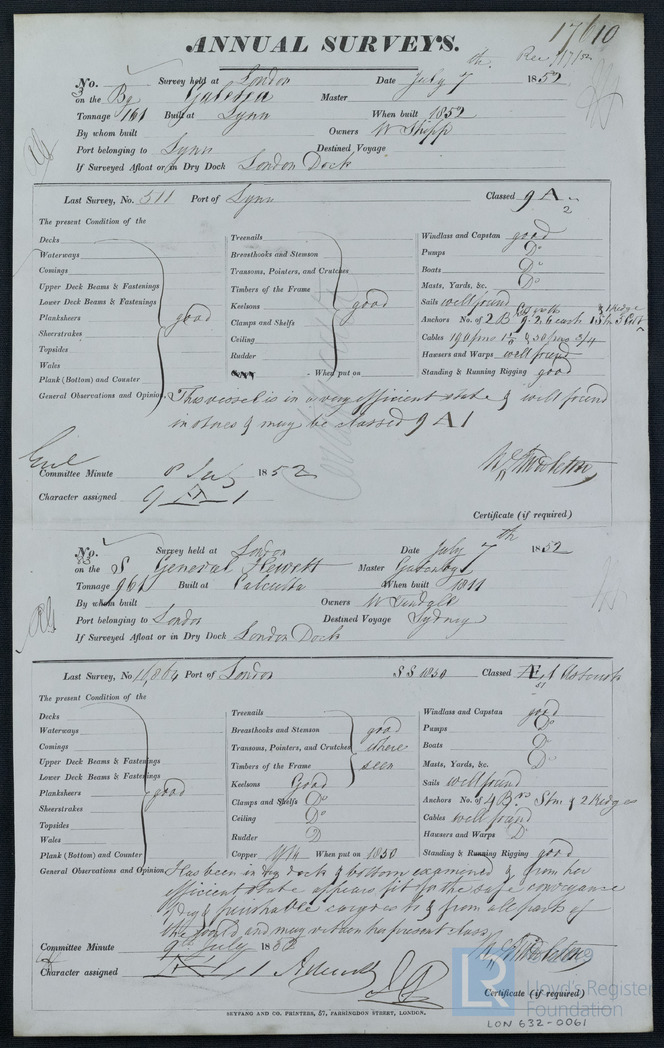 17610
ANNUAL SURVEYS.
No. Survey held at London Date July 7th 1852
on the Bg Master
Tonnage 161 Built at Lynn When built 1852
By whom built Owners W Shipp
Port belonging to Lynn Destined Voyage
If Surveyed Afloat or in Dry Dock London Dock
Last Survey, No. 511 Port of Lynn Classed 9 A
The present Condition of the
Decks Treenails Windlass and Capstan good
Waterways Breasthooks and Stemson Pumps Do
Comings Transoms, Pointers, and Crutches Boats Do
Upper Deck Beams & Fastenings Timbers of the Frame Masts, Yards, &c. Do
Lower Deck Beams & Fastenings Keelsons good Sails well found
Planksheers good Clamps and Shelfs Anchors No. of 2 B
Sheerstrakes Ceiling Cables
Topsides Rudder Hawsers and Warps well found
Wales When put on Standing & Running Rigging good
Plank (Bottom) and Counter
General Observations and Opinion, This vessel is in a very efficient state & well found
in stores & may be classed 9 A 1
Committee Minute 8 July 1852
Character assigned 9 A 1
Certificate (if required)
No. Survey held at London Date July 7th 1852
on the S General Hewett Master Gatenby
Tonnage 961 Built at Calcutta When built 1811
By whom built Owners W Tindall
Port belonging to London Destined Voyage Sydney
If Surveyed Afloat or in Dry Dock London Dock
Last Survey, No. Port of London SS 1850 Classed Æ 1
The present Condition of the
Decks Treenails Windlass and Capstan good
Waterways Breasthooks and Stemson good Pumps Do
Comings Transoms, Pointers, and Crutches where Boats Do
Upper Deck Beams & Fastenings Timbers of the Frame seen Masts, Yards, &c. Do
Lower Deck Beams & Fastenings Keelsons Good Sails well found
Planksheers good Clamps and Shelfs Do Anchors No. of 4 Brs Strm & 2 Kedges
Sheerstrakes Ceiling Do Cables well found
Topsides Rudder D Hawsers and Warps D
Wales Copper When put on 1850 Standing & Running Rigging good
Plank (Bottom) and Counter
General Observations and Opinion, Has been in dry dock & bottom examined & from her
efficient state appears fit for the safe conveyance
of dry & perishable cargoes to & from all parts of
the world and may retain her present class
Committee Minute 9th July 185
Character assigned Æ 1
Certificate (if required)
SEYFANG AND CO. PRINTERS, 57, FARRINGDON STREET, LONDON.
LR
Lloyd's Register
Foundation
LON 632-0061